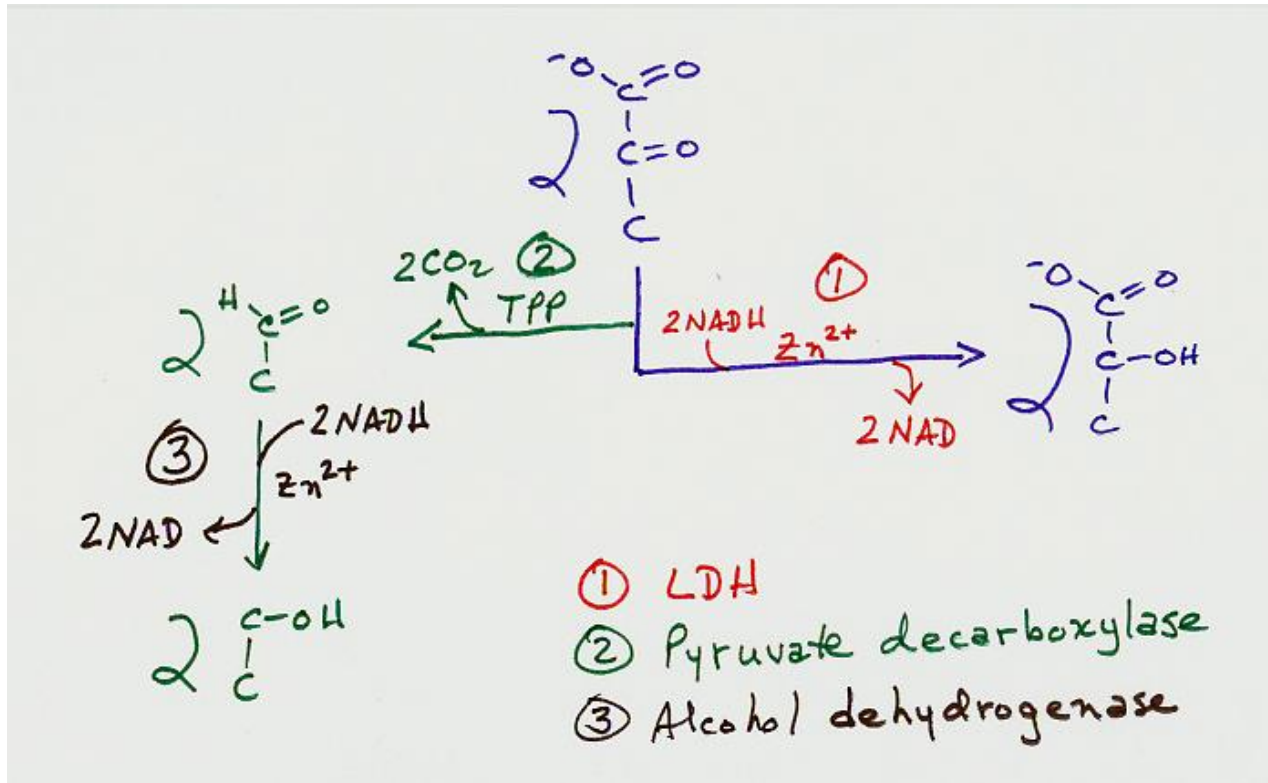 ⁻O C=O
2 C=O
C
2CO₂ ②
TPP
2NADH Zn²⁺ ①
2 NAD
⁻O C=O
2 C-OH
C
2 H C=O
C
③ 2NADH
Zn²⁺
2NAD
2 C-OH
C
① LDH
② Pyruvate decarboxylase
③ Alcohol dehydrogenase